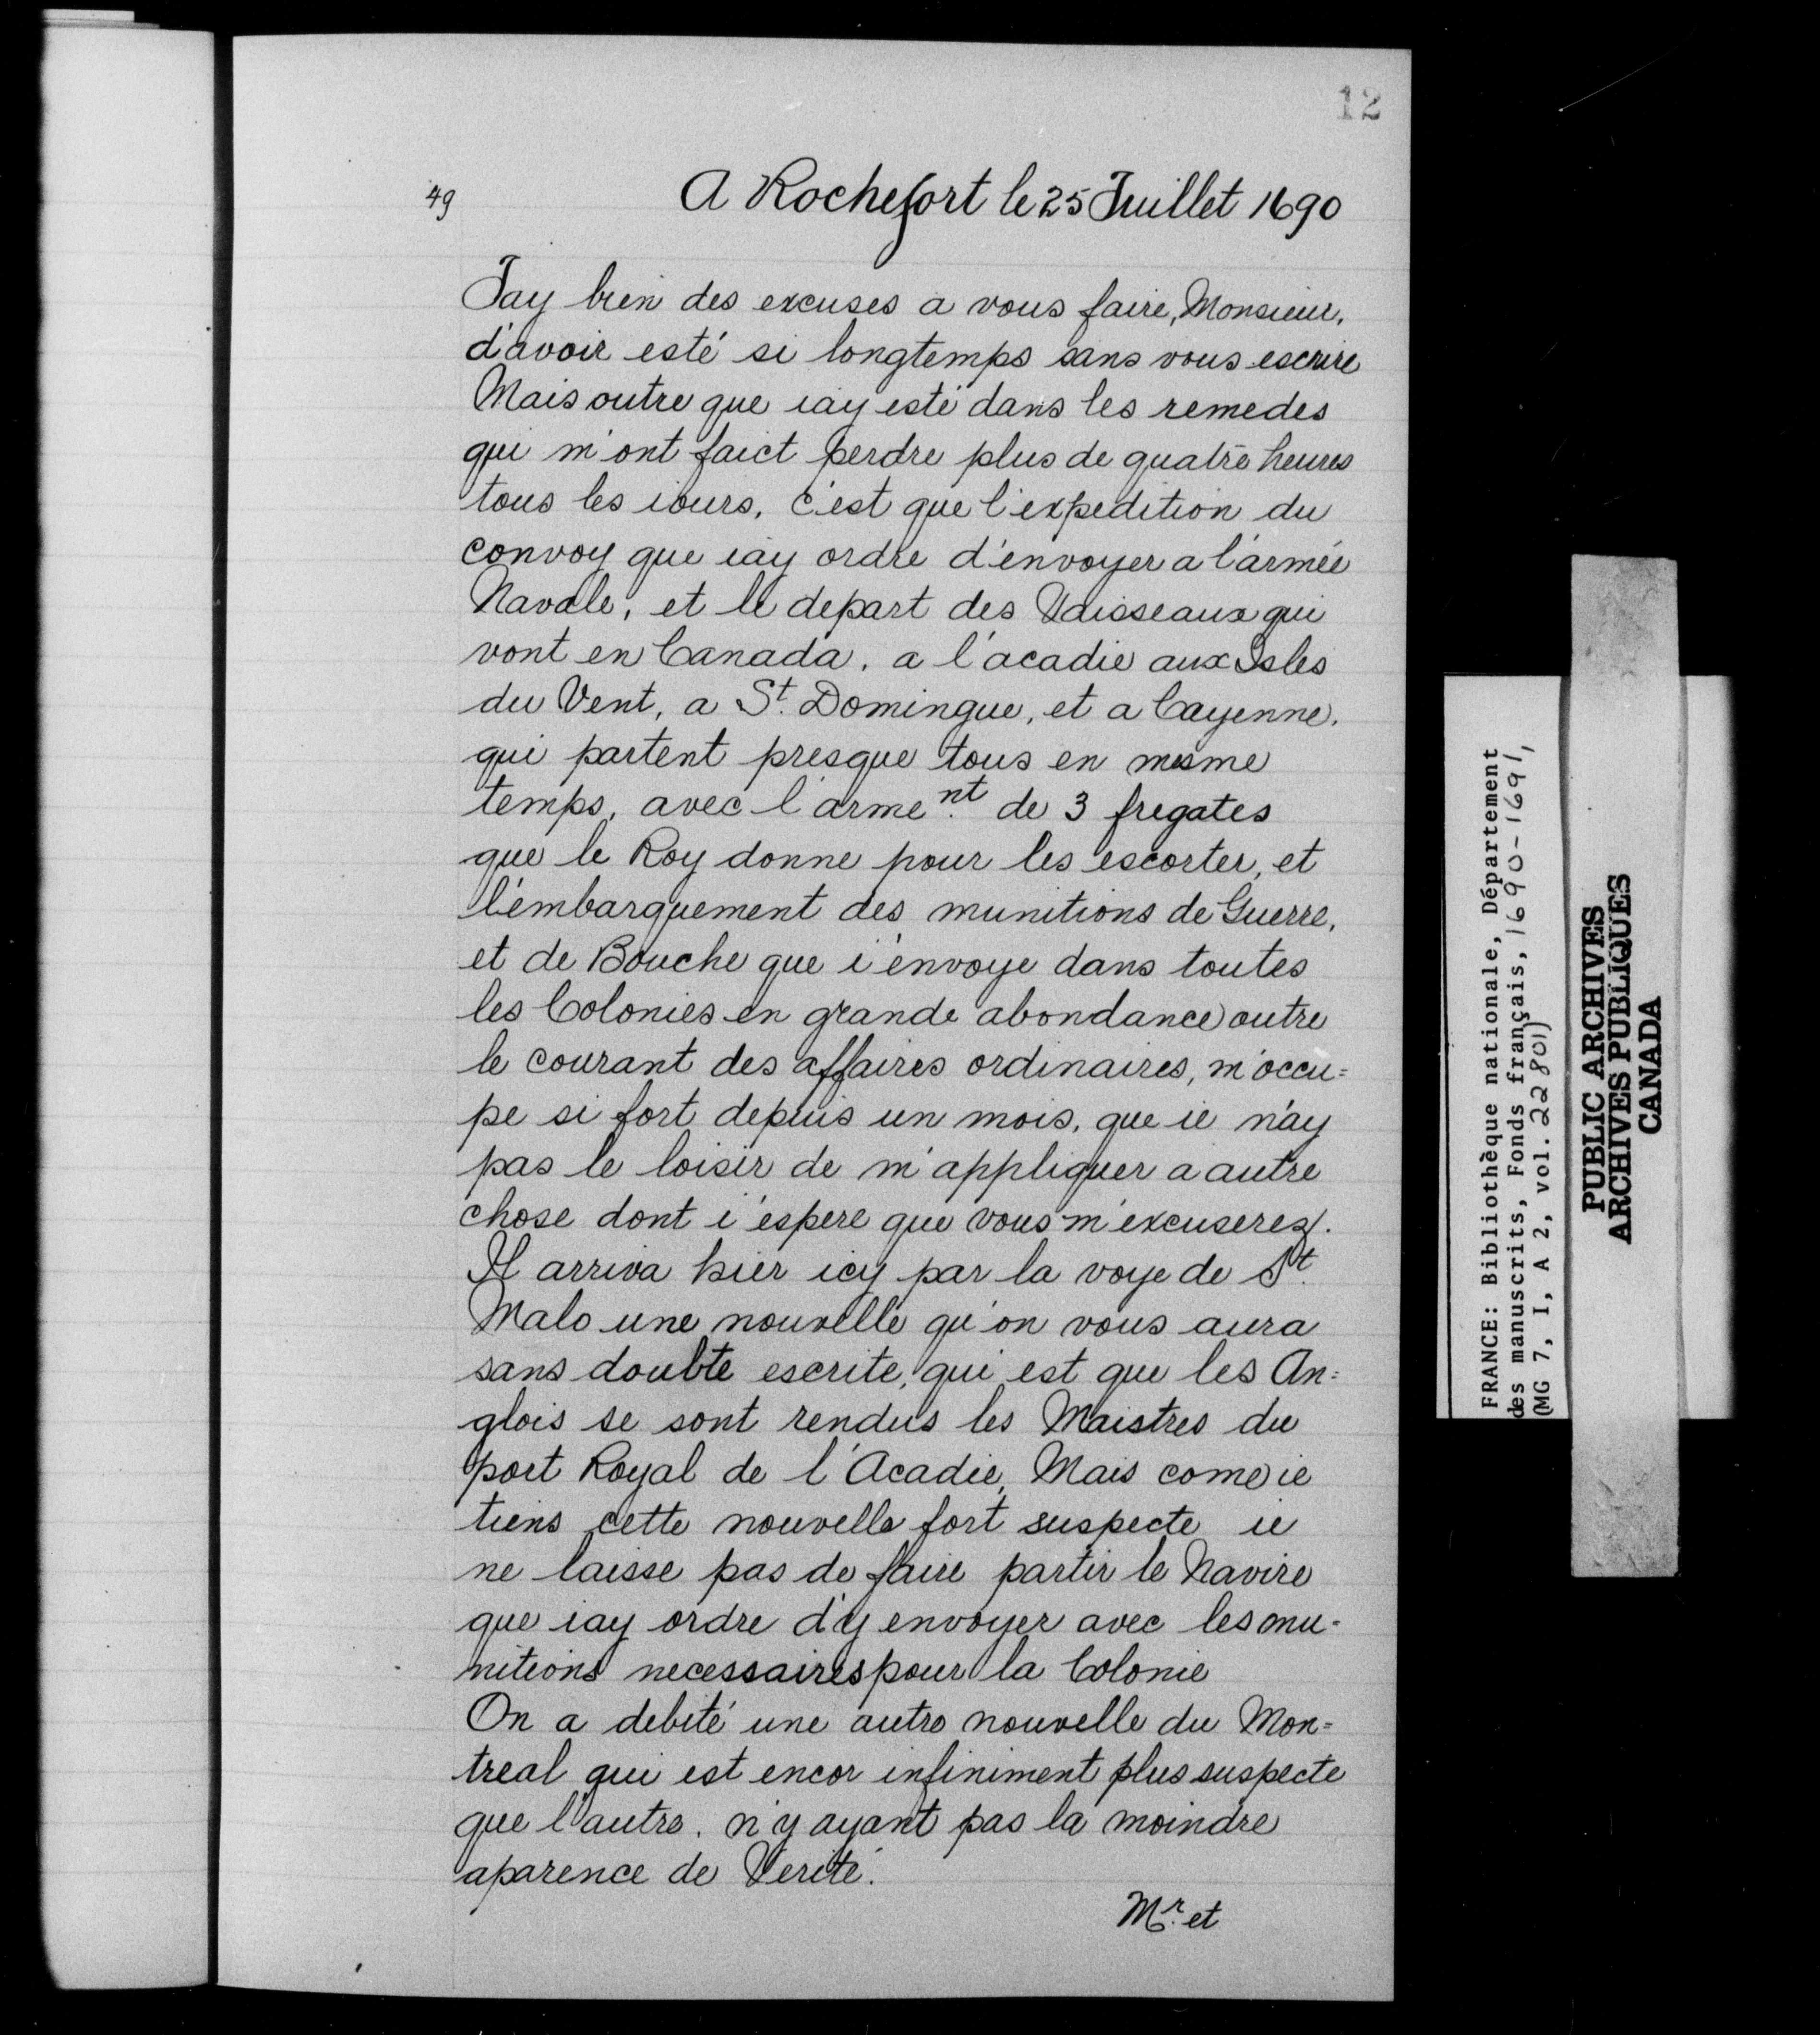 12
49
A Rochefort le 25 Juillet 1690
Jay bien des excuses a vous faire, Monsieur,
d'avoir esté si longtemps sans vous escrire
Mais outre que iay esté dans les remedes
qui m'ont faict perdre plus de quatre heures
tous les iours, c'est que l'expedition du
convoy que iay ordre d'envoyer a l'armée
Navale, et le depart des Vaisseaux qui
vont en Canada, a l'acadie aux Isles
du Vent, a St. Domingue, et a Cayenne,
qui partent presque tous en mesme
temps, avec l'arment. de 3 fregates
que le Roy donne pour les escorter, et
l'embarquement des munitions de Guerre,
et de Bouche que i'envoye dans toutes
les Colonies en grande abondance outre
le courant des affaires ordinaires, m'occu=
pe si fort depuis un mois, que ie n'ay
pas le loisir de m'appliquer a autre
chose dont i'espere que vous m'excuserez.
Il arriva hier icy par la voye de St.
Malo une nouvelle qu'on vous aura
sans doubte escrite, qui est que les An=
glois se sont rendus les Maistres du
port Royal de l'Acadie, Mais come ie
tiens cette nouvelle fort suspecte ie
ne laisse pas de faire partir le Navire
que iay ordre d'y envoyer avec les mu-
nitions necessaires pour la Colonie
On a debité une autre nouvelle du Mon=
treal qui est encor infiniment plus suspecte
que l'autre. n'y ayant pas la moindre
aparence de Verité.
Mr. et
FRANCE: Bibliothèque nationale, Département
des manuscrits, Fonds français, 1690-1691,
(MG 7, I, A 2, vol. 22801)
PUBLIC ARCHIVES
ARCHIVES PUBLIQUES
CANADA